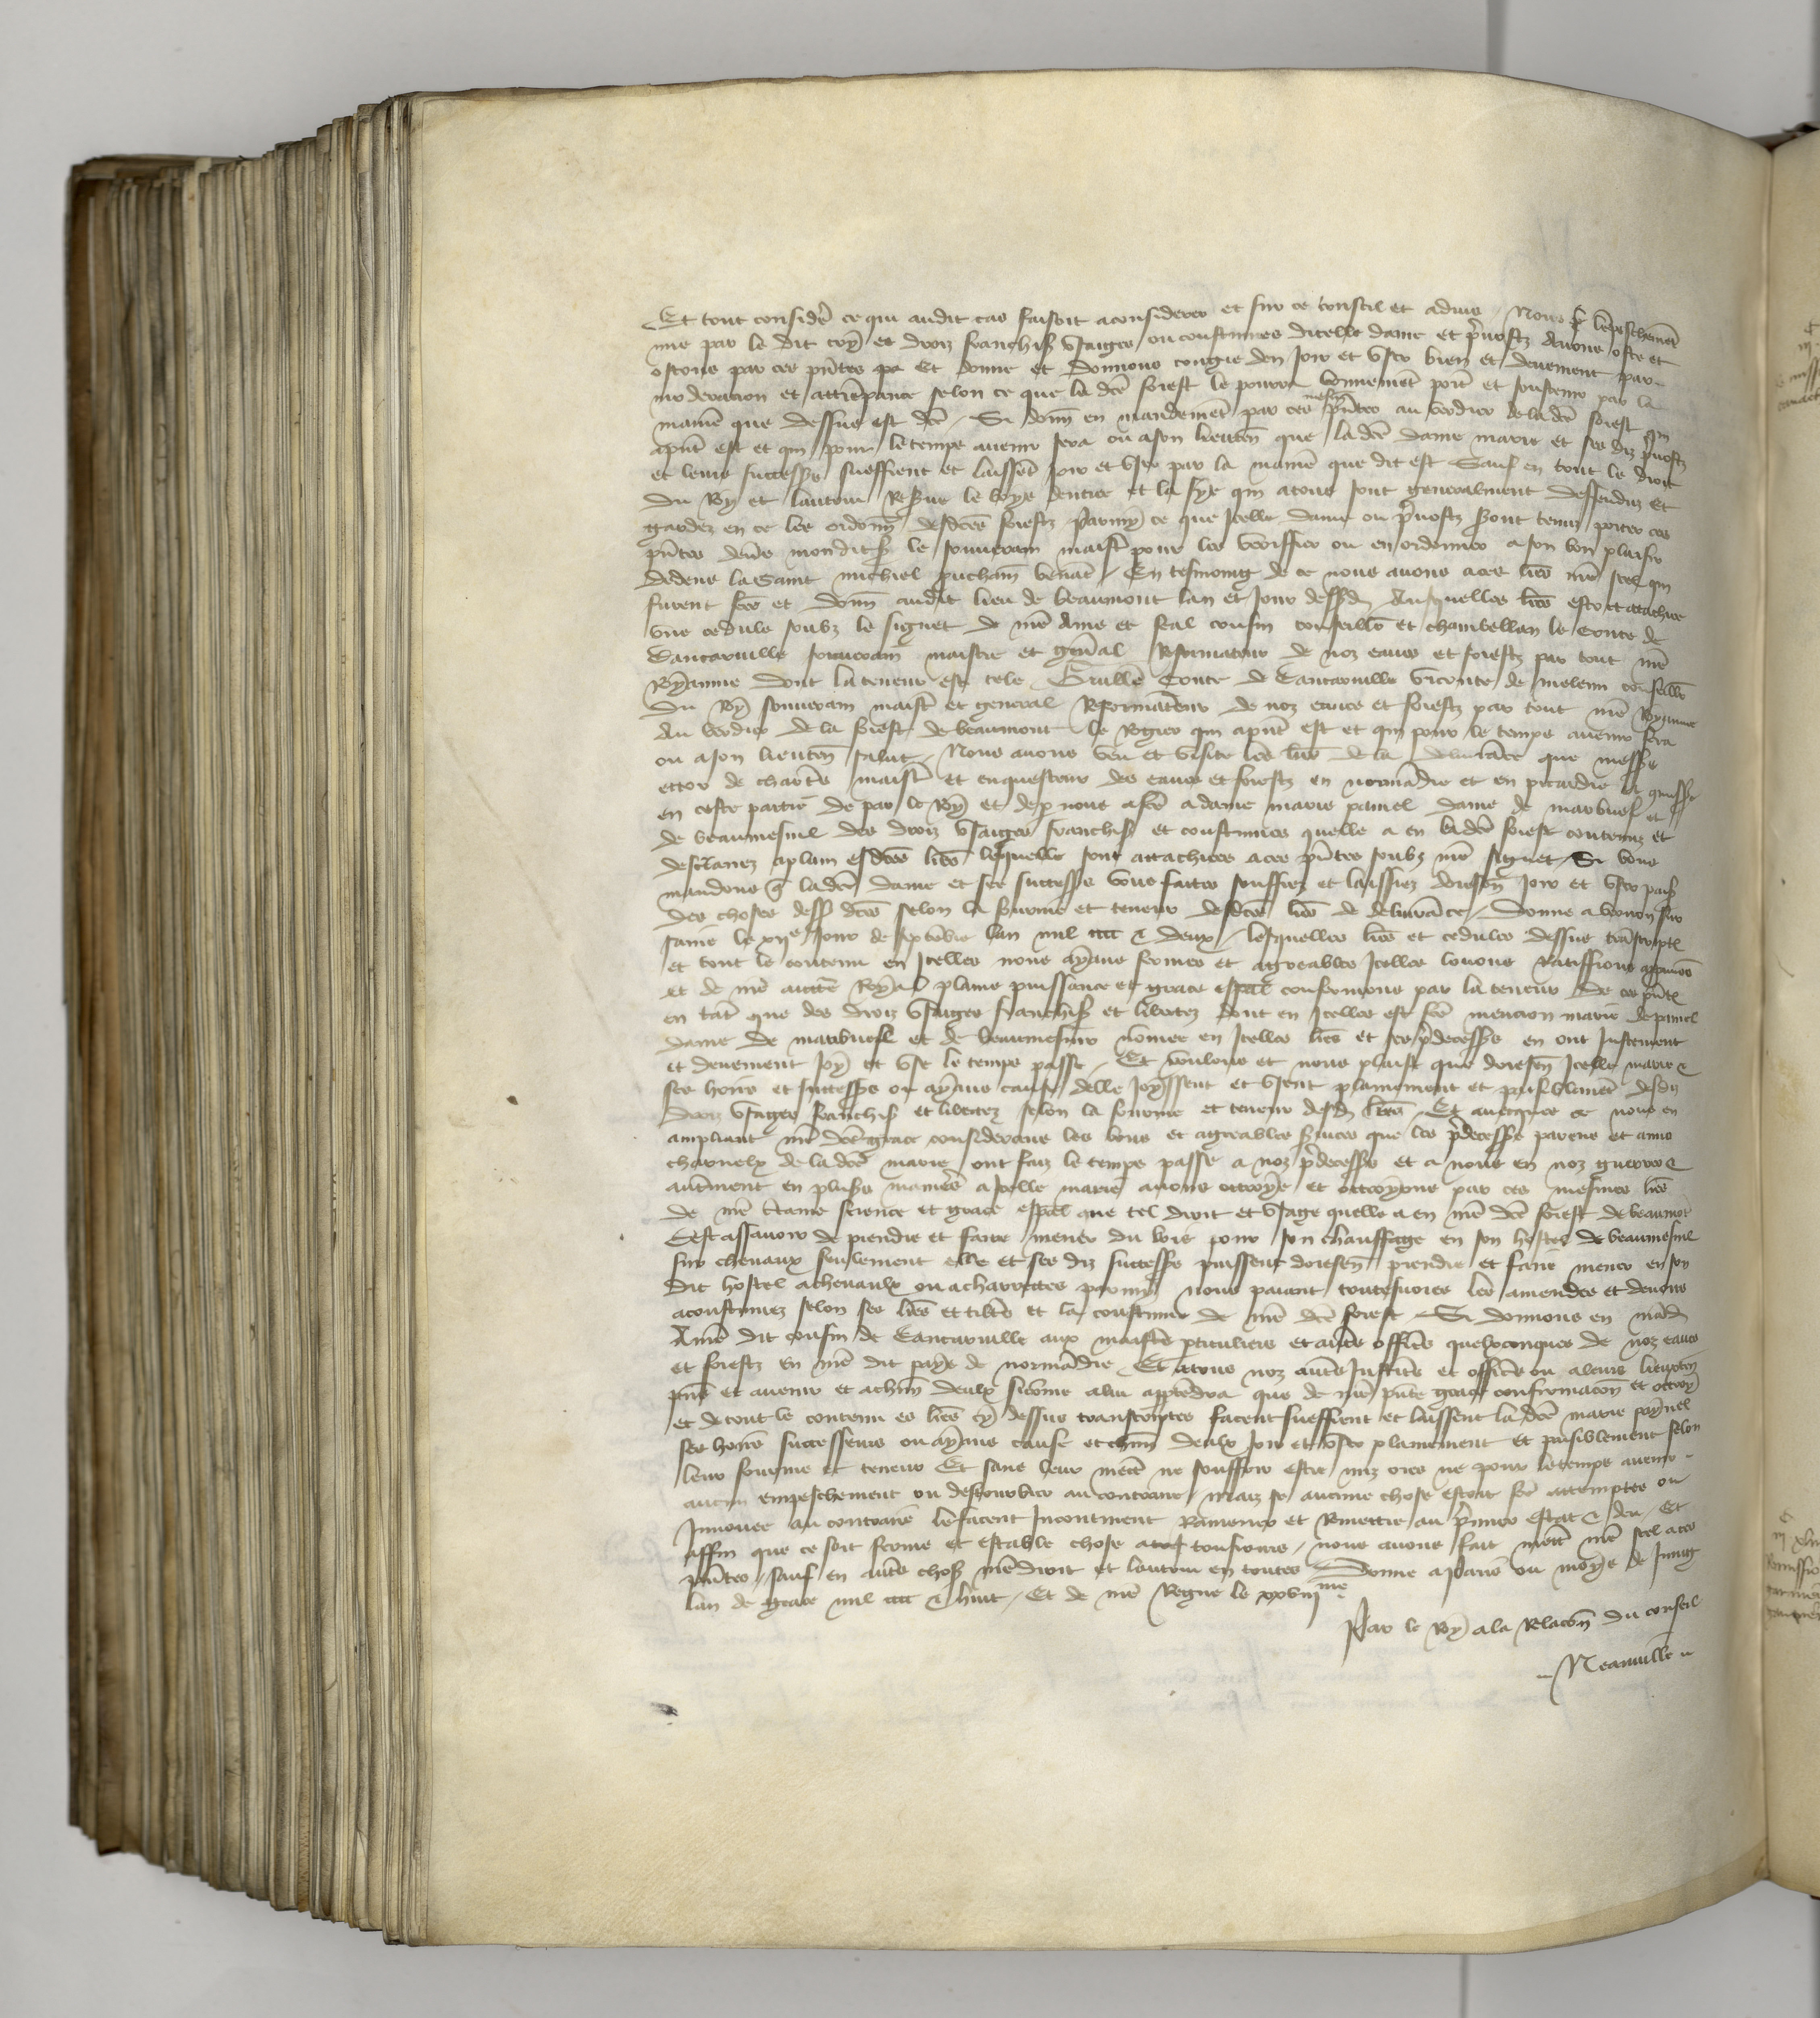 Et tout considere ce qui audit cas faisoit aconsiderer et sur ce conseil et aduis / Nous lempeschemt
mis par le dit roy et droiz franchiss vsaiges ou coustumes dicelle dame et preuostz auons oste et
ostons par ces pntes Et donne et donnons congie den Joir et vser bien et deuement par
moderacion et attrempance selon ce que la dce forest le pourra bonnement porter et soustenir par la
manie que dessus est dce / Si donn en mandemt par ces mesmes pntes au verdier de la dce forest qui
apnt est et qui pour le temps auenir sera ou a son lieuten que la dce dame marie et ses diz preuostz
et leurs successrs sueffrent et laissent Joir et vser par la manie que dit est Sauf en tout le droit
du Roy et lautrui Reserue le boys dentree et la sye qui atous sont generalment deffenduz Et
gardez en ce les ordonn desdces forestz parmy ce que Icelle dame ou preuostz seront tenuz porter ces
pntes deuers mondit s le souuerain maistre pour les veriffier ou en ordonner a son bon plaisir
dedens la Saint michiel prochain venat / En tesmoing de ce nous auons a ces lres mis scel qui
furent fces et donn audit lieu de beaumont lan et Jour dessd / Ausquelles lres est attachiee
vne cedule soubz le signet de nre Ame et feal cousin conseillr et chambellan le Conte de
Tancaruille souuerain maistre et genal Reformateur de noz eaues et forestz par tout nre
Royaume dont la teneur est tele / Guille Conte de Tancaruille viconte de meleun conseillr
du Roy souuerain maistre et general Reformateur de noz eaues et forestz par tout nre Royaume
Au verdier de la forest de beaumont le Rogier qui apnt est et qui pour le temps auenir sera
ou a son lieuten salut / Nous auons veu et visite les lres de la deliurance que messre
ector de chartres maistre et enquesteur des eaues et forestz en normadie et en picardie
en ceste partie de par le Roy et de p nous a fce a dame marie painel dame de marbuef et
de beaumesnil des droiz vsaiges franchiss et coustumes quelle a en ladce forest contenuz et
desclairez aplain esdces lres lesquelles sont attachiees aces pntes soubz nre signet / Si vous
mandons que ladce dame et ses successrs vous faites souffrez et laissiez doresen Joir et vser paisi
des choses dess dces selon la fourme et teneur desdces lres de deliurance / Donne a vernon sur
saine le xije Jour de septebre lan mil cccc & deux / lesquelles lres et cedules dessus transcriptes
et tout le contenu en Icelles nous ayans fermes et agreables Icelles louons Ratiffions appuuos
et de nre aucte Royal plaine puissance et grace espal confermons par la teneur de ces pntes
en tat que des droiz vsaiges franchiss et libertez dont en Icelles est fce mencion marie de painel
dame de marbuef et de beaumesnil nomee en Icelles lres et ses predecessrs en ont Justement
et deuement Joy et vse le temps passe / Et voulons et nous plaist que doresen Icelle marie &
ses hoirs et successrs ou ayans cause delle Joyssent et vsent plainement et paisiblement desdiz
droiz vsaiges franchiss et libertez selon la fourme et teneur desd lres / Et auecques ce nous en
ampliant nre dce grace considerans les bons et agreables seruices que les predecessrs parens et amis
charnelx de la dce marie ont faiz le temps passe a noz predecessrs et a nous en noz guerres &
autrement en plusrs manies a Icelle marie auons ottroye et ottroyons par ces mesmes lres
de nre ctaine science et grace espal que tel droit et vsage quelle a en nre dce forest de beaumot
Cest assauoir de prendre et faire mener du bois pour son chauffage en son hostel de beaumesnil
sur cheuaux seulement elle et ses diz successrs puissent doresen prendre et faire mener en son
dit hostel a cheuaulx ou a charrettes parmy nous paiant toutesuoies les amendes et deuoirs
acoustumez selon ses lres et tiltres et la coustume de nre dce forest / Si donnons en mand
A nre dit cousin de Tancaruille aux maistres pticuliers et autres offics quelxconques de noz eaues
et forestz en nre dit pays de normadie Et atous noz autres Justics et offics ou a leurs lieuxten
pns et auenir et achun deulx sicome alui apptedra que de nre pnte grace confirmacon et ottroy
et de tout le contenu es lres cy dessus transcriptes facent sueffrent et laissent la dce marie paynel
ses hoirs successeurs ou ayans cause et chun deulx Joir et vser plainement et paisiblement selon
leur fourme et teneur Et sans leur mectre ne souffrir estre mis ores ne pour le temps auenir
aucun empeschement ou destourbier au contraire / Maiz se aucune chose estoit fce attemptee ou
Innouee au contraire le facent Incontinent Ramener et Remettre au premier estat & deu / Et
affin que ce soit ferme et estable chose a tousiours / nous auons fait mectre nre scel aces
pntes / sauf en autres choses nre droit et lautrui en toutes / Donne a paris ou moys de Juing
lan de grace mil cccc & huit / Et de nre Regne le xxviijme
Par le Roy a la Relacon du conseil
Neauuille